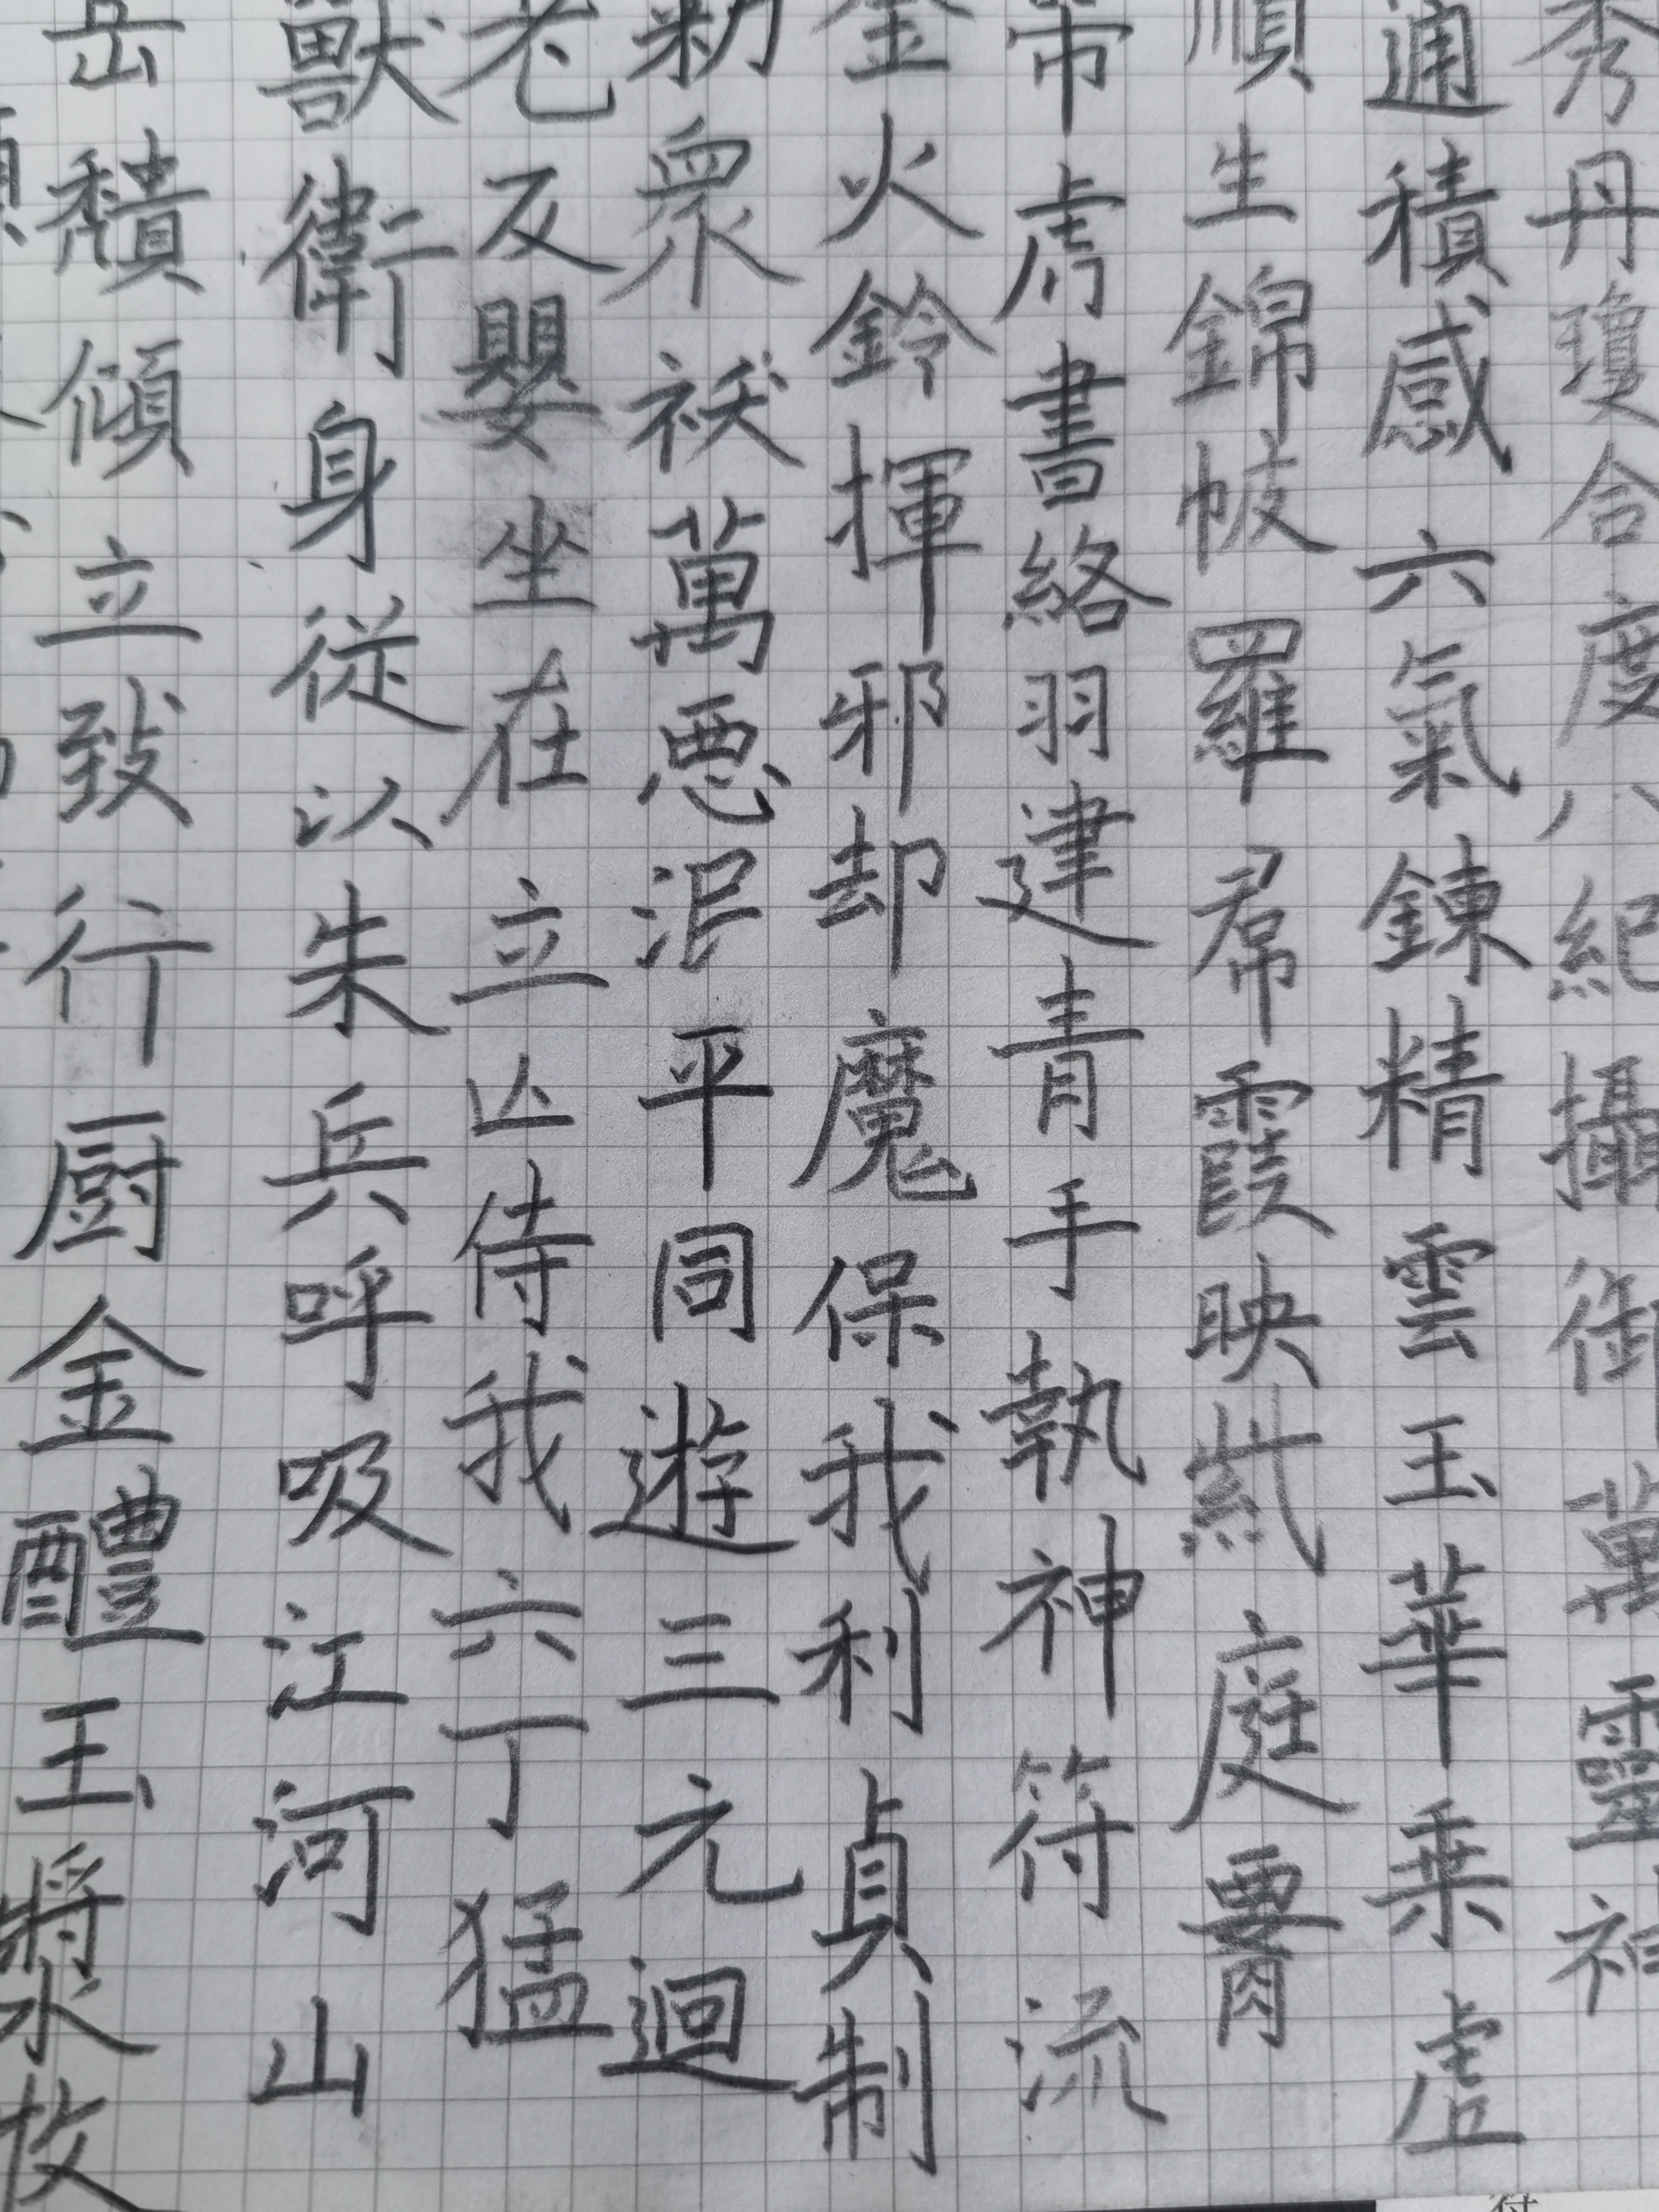 秀丹瓊合度八紀攝御萬靈神
通積感六氣鍊精雲玉華乗虛
順生錦帔羅帬霞映紫庭霄
帶虎書絡羽建青手執神符流
金火鈴揮邪却魔保我利貞制
勑衆祅萬悪泯平同遊三元迴
老反嬰坐在立亾侍我六丁猛
獸衛身従以朱兵呼吸江河山
岳穨傾立致行厨金醴玉漿